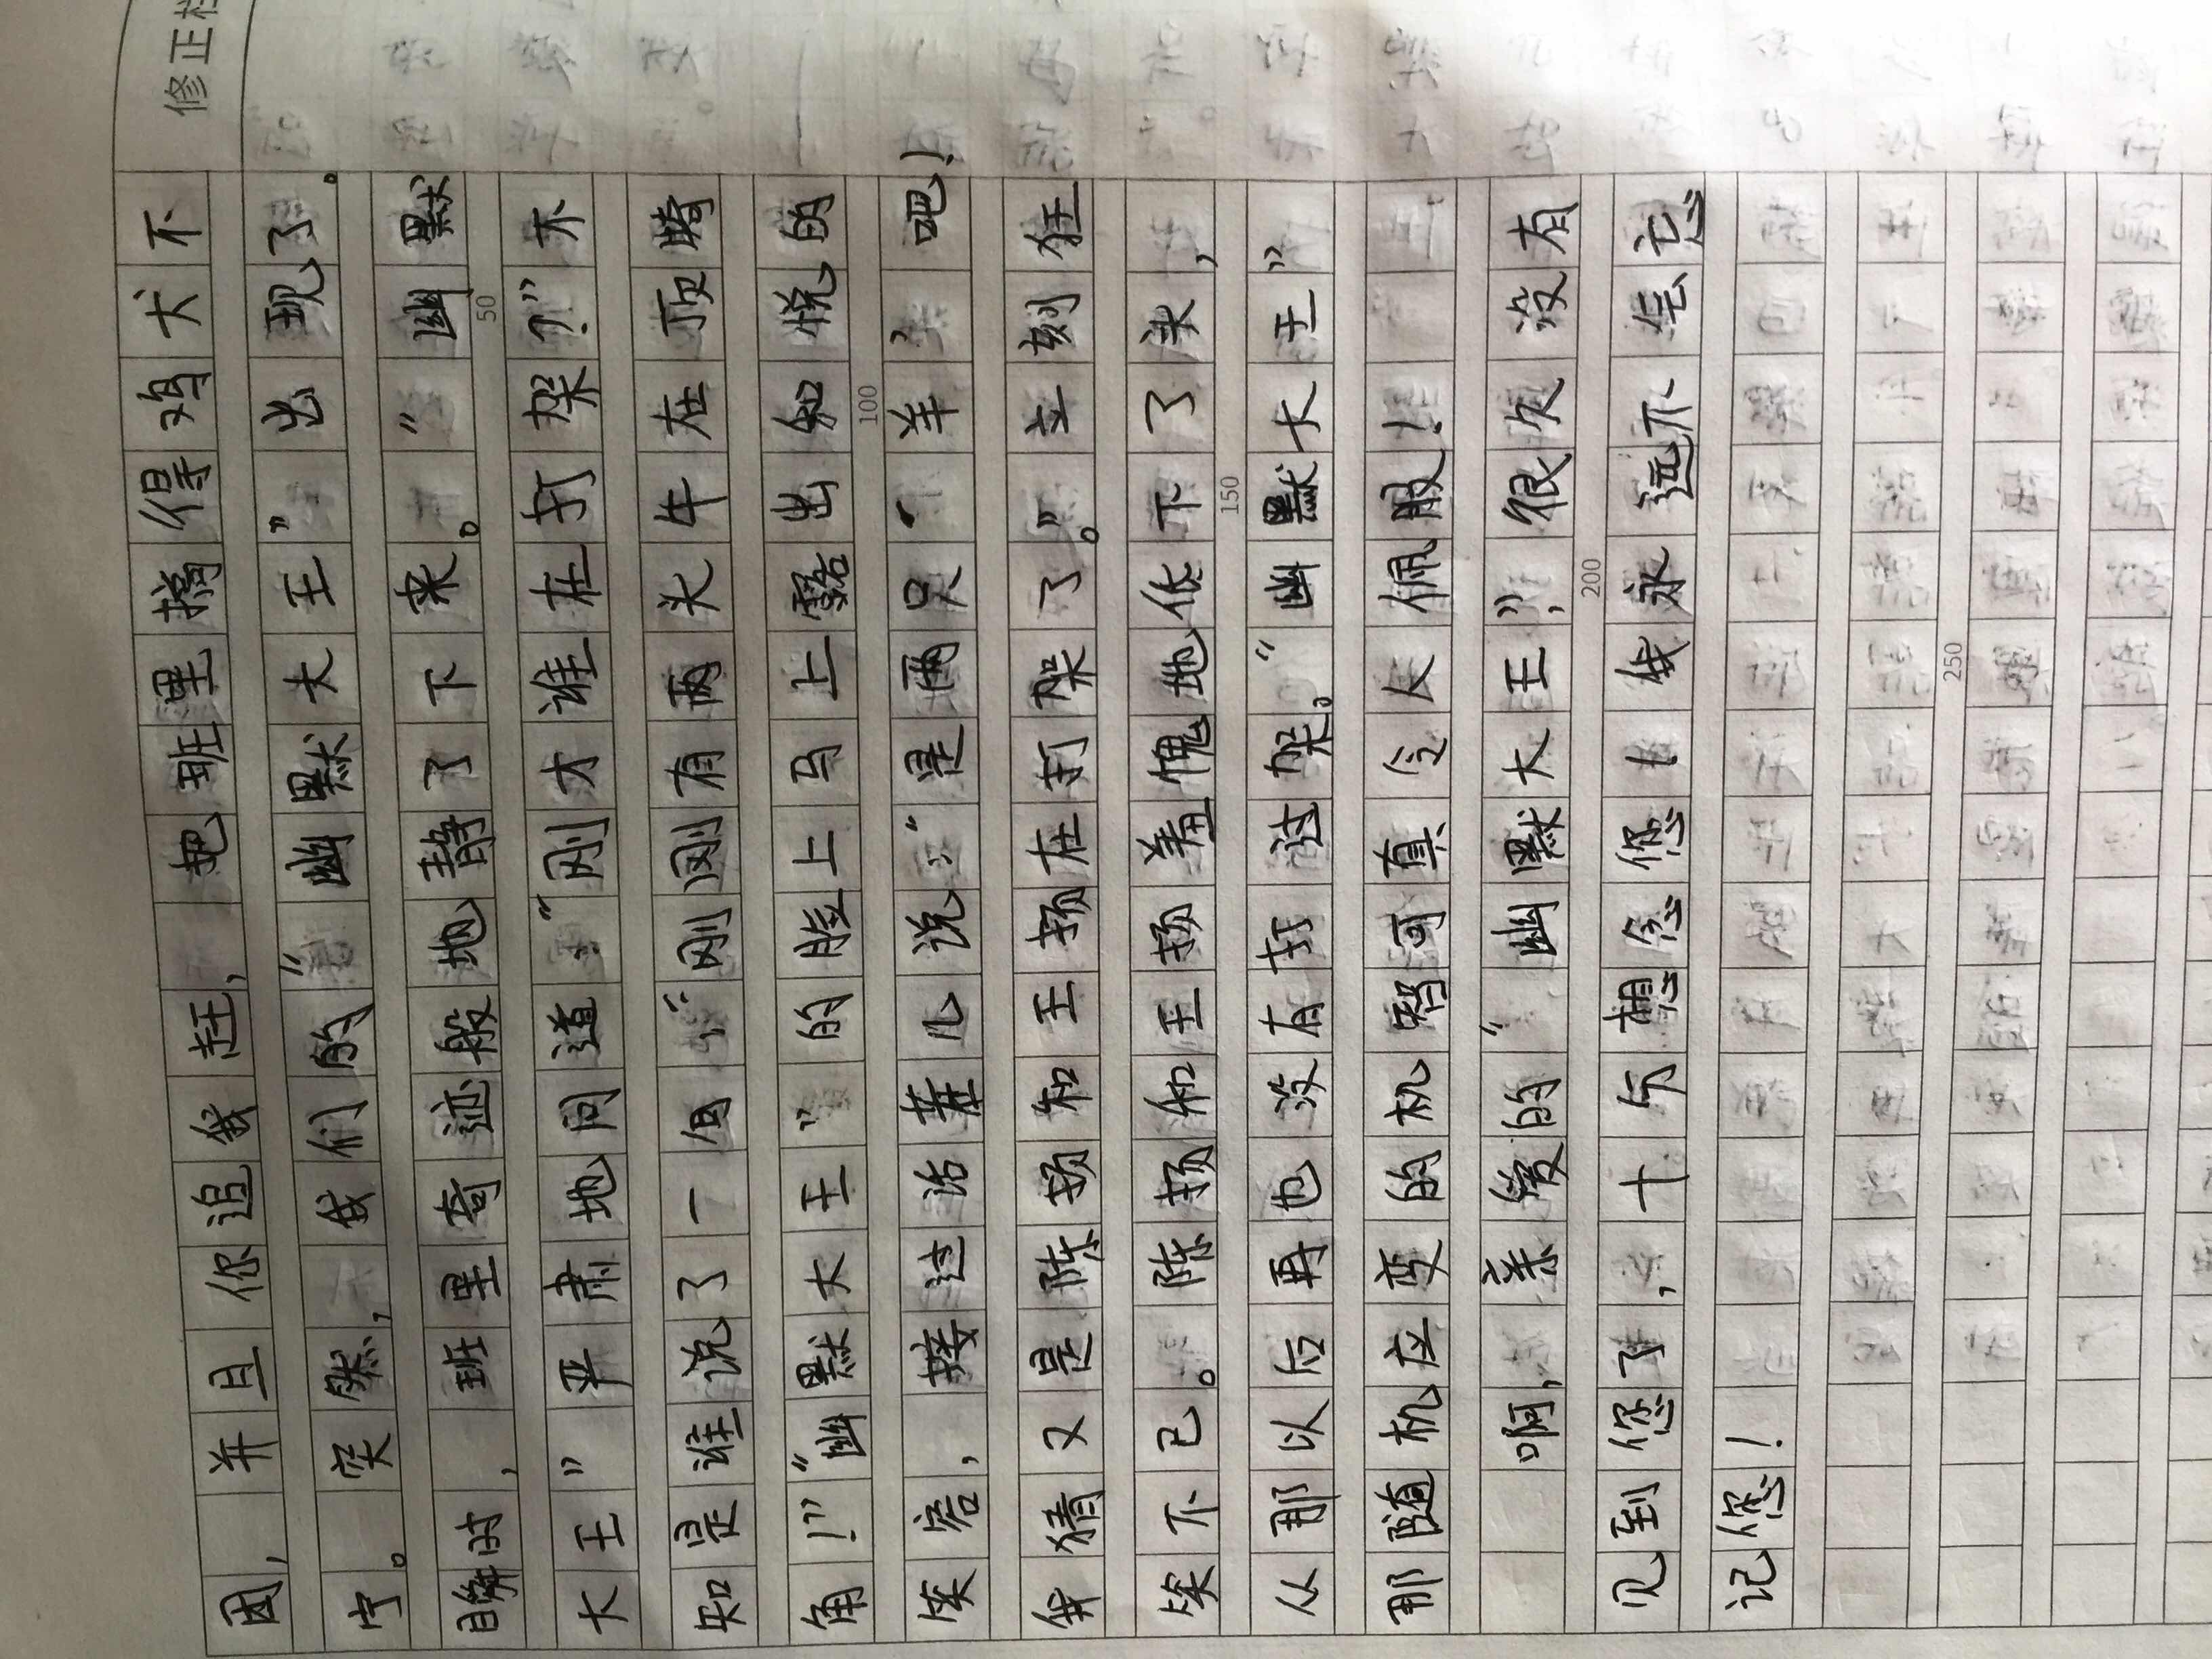 修正栏
因,并且你追我赶,把班里搞得鸡犬不
宁。突然,我们的“幽默大王”出现了。
瞬时,班里奇迹般地静了下来。“幽默
50
大王”严肃地问道:“刚才谁在打架?”不
知是谁说了一句:“刚刚有两头牛在顶犄
角!”“幽默大王”的脸上马上露出和悦的
100
笑容,接过话茬儿说:“是两只‘羊’吧!
我猜又是陈扬和王扬在打架了”。立刻狂
笑不已。陈扬和王扬羞愧地低下了头,
150
从那以后再也没有打过架。“幽默大王”
那随机应变的机智可真令人佩服!
啊,亲爱的“幽默大王”,很久没有
200
见到您了,十分想念您!我永远不会忘
记您!
250